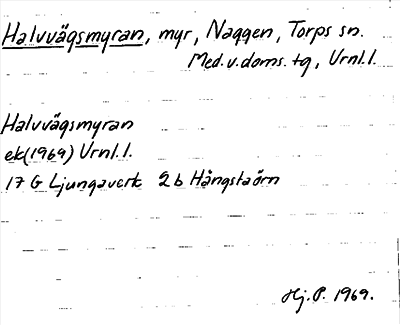 Halvvägsmyran, myr, Naggen, Torps sn.
Med.v.doms.tg, Vrnl.l.
Halvvägsmyran
ek(1969) Vrnl.l.
17 G Ljungaverk 2b Hångstaörn
Hj.P. 1969.